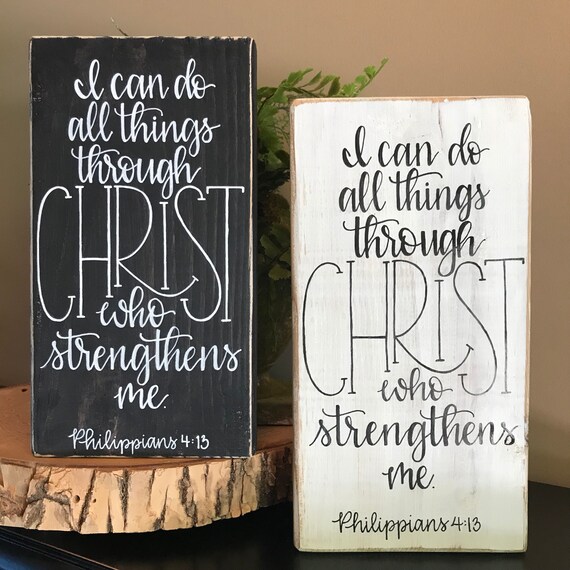 I can do
all things
through
CHRIST
who
strengthens
me.
Philippians 4:13
I can do
all things
through
CHRIST
who
strengthens
me.
Philippians 4:13